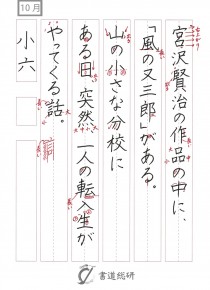 10月
宮沢賢治の作品の中に、
「風の又三郎」がある。
山の小さな分校に
ある日、突然、一人の転入生が
やってくる話。
小六
書道総研